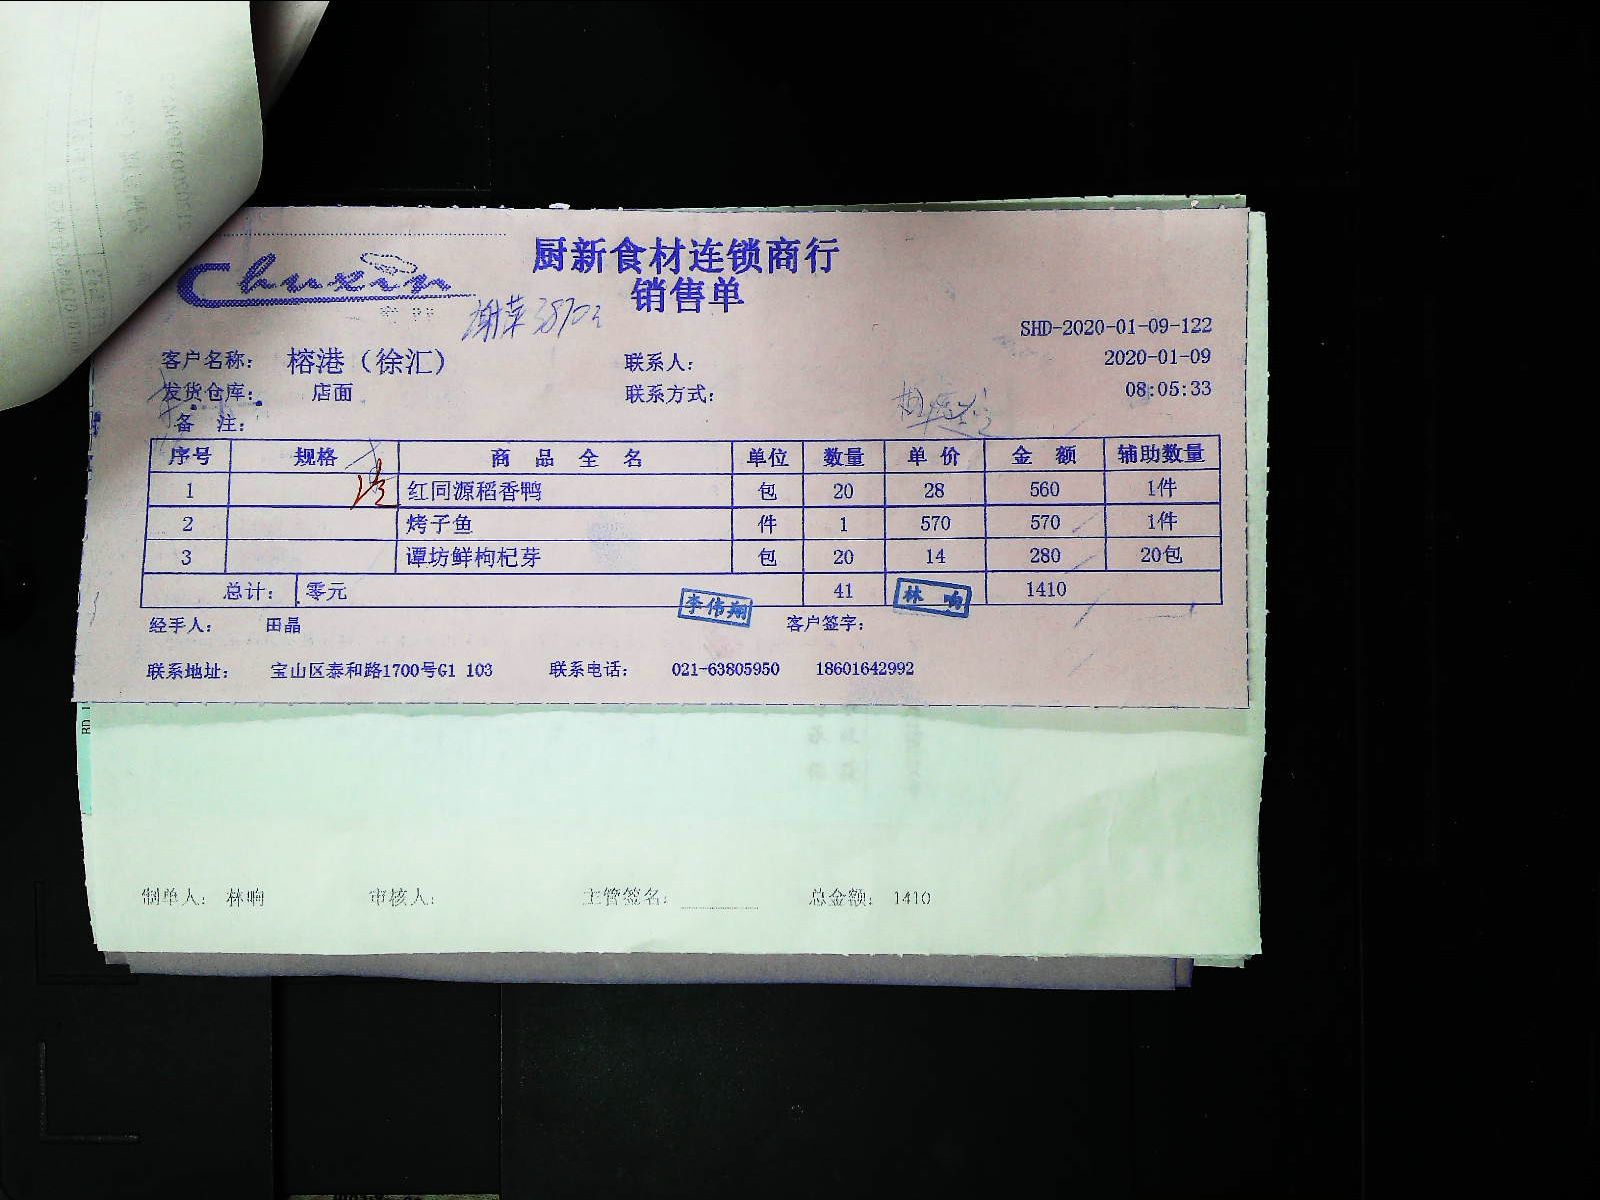 Chuxin
厨新食材连锁商行
销售单
SHD-2020-01-09-122
客户名称： 榕港（徐汇） 联系人： 2020-01-09
发货仓库： 店面 联系方式： 08:05:33
备 注：
序号 规格 商 品 全 名 单位 数量 单 价 金 额 辅助数量
1 红同源稻香鸭 包 20 28 560 1件
2 烤子鱼 件 1 570 570 1件
3 谭坊鲜枸杞芽 包 20 14 280 20包
总计： 零元 41 1410
李伟翔 林响
经手人： 田晶 客户签字：
联系地址： 宝山区泰和路1700号G1 103 联系电话： 021-63805950 18601642992
制单人： 林响 审核人： 主管签名： 总金额： 1410